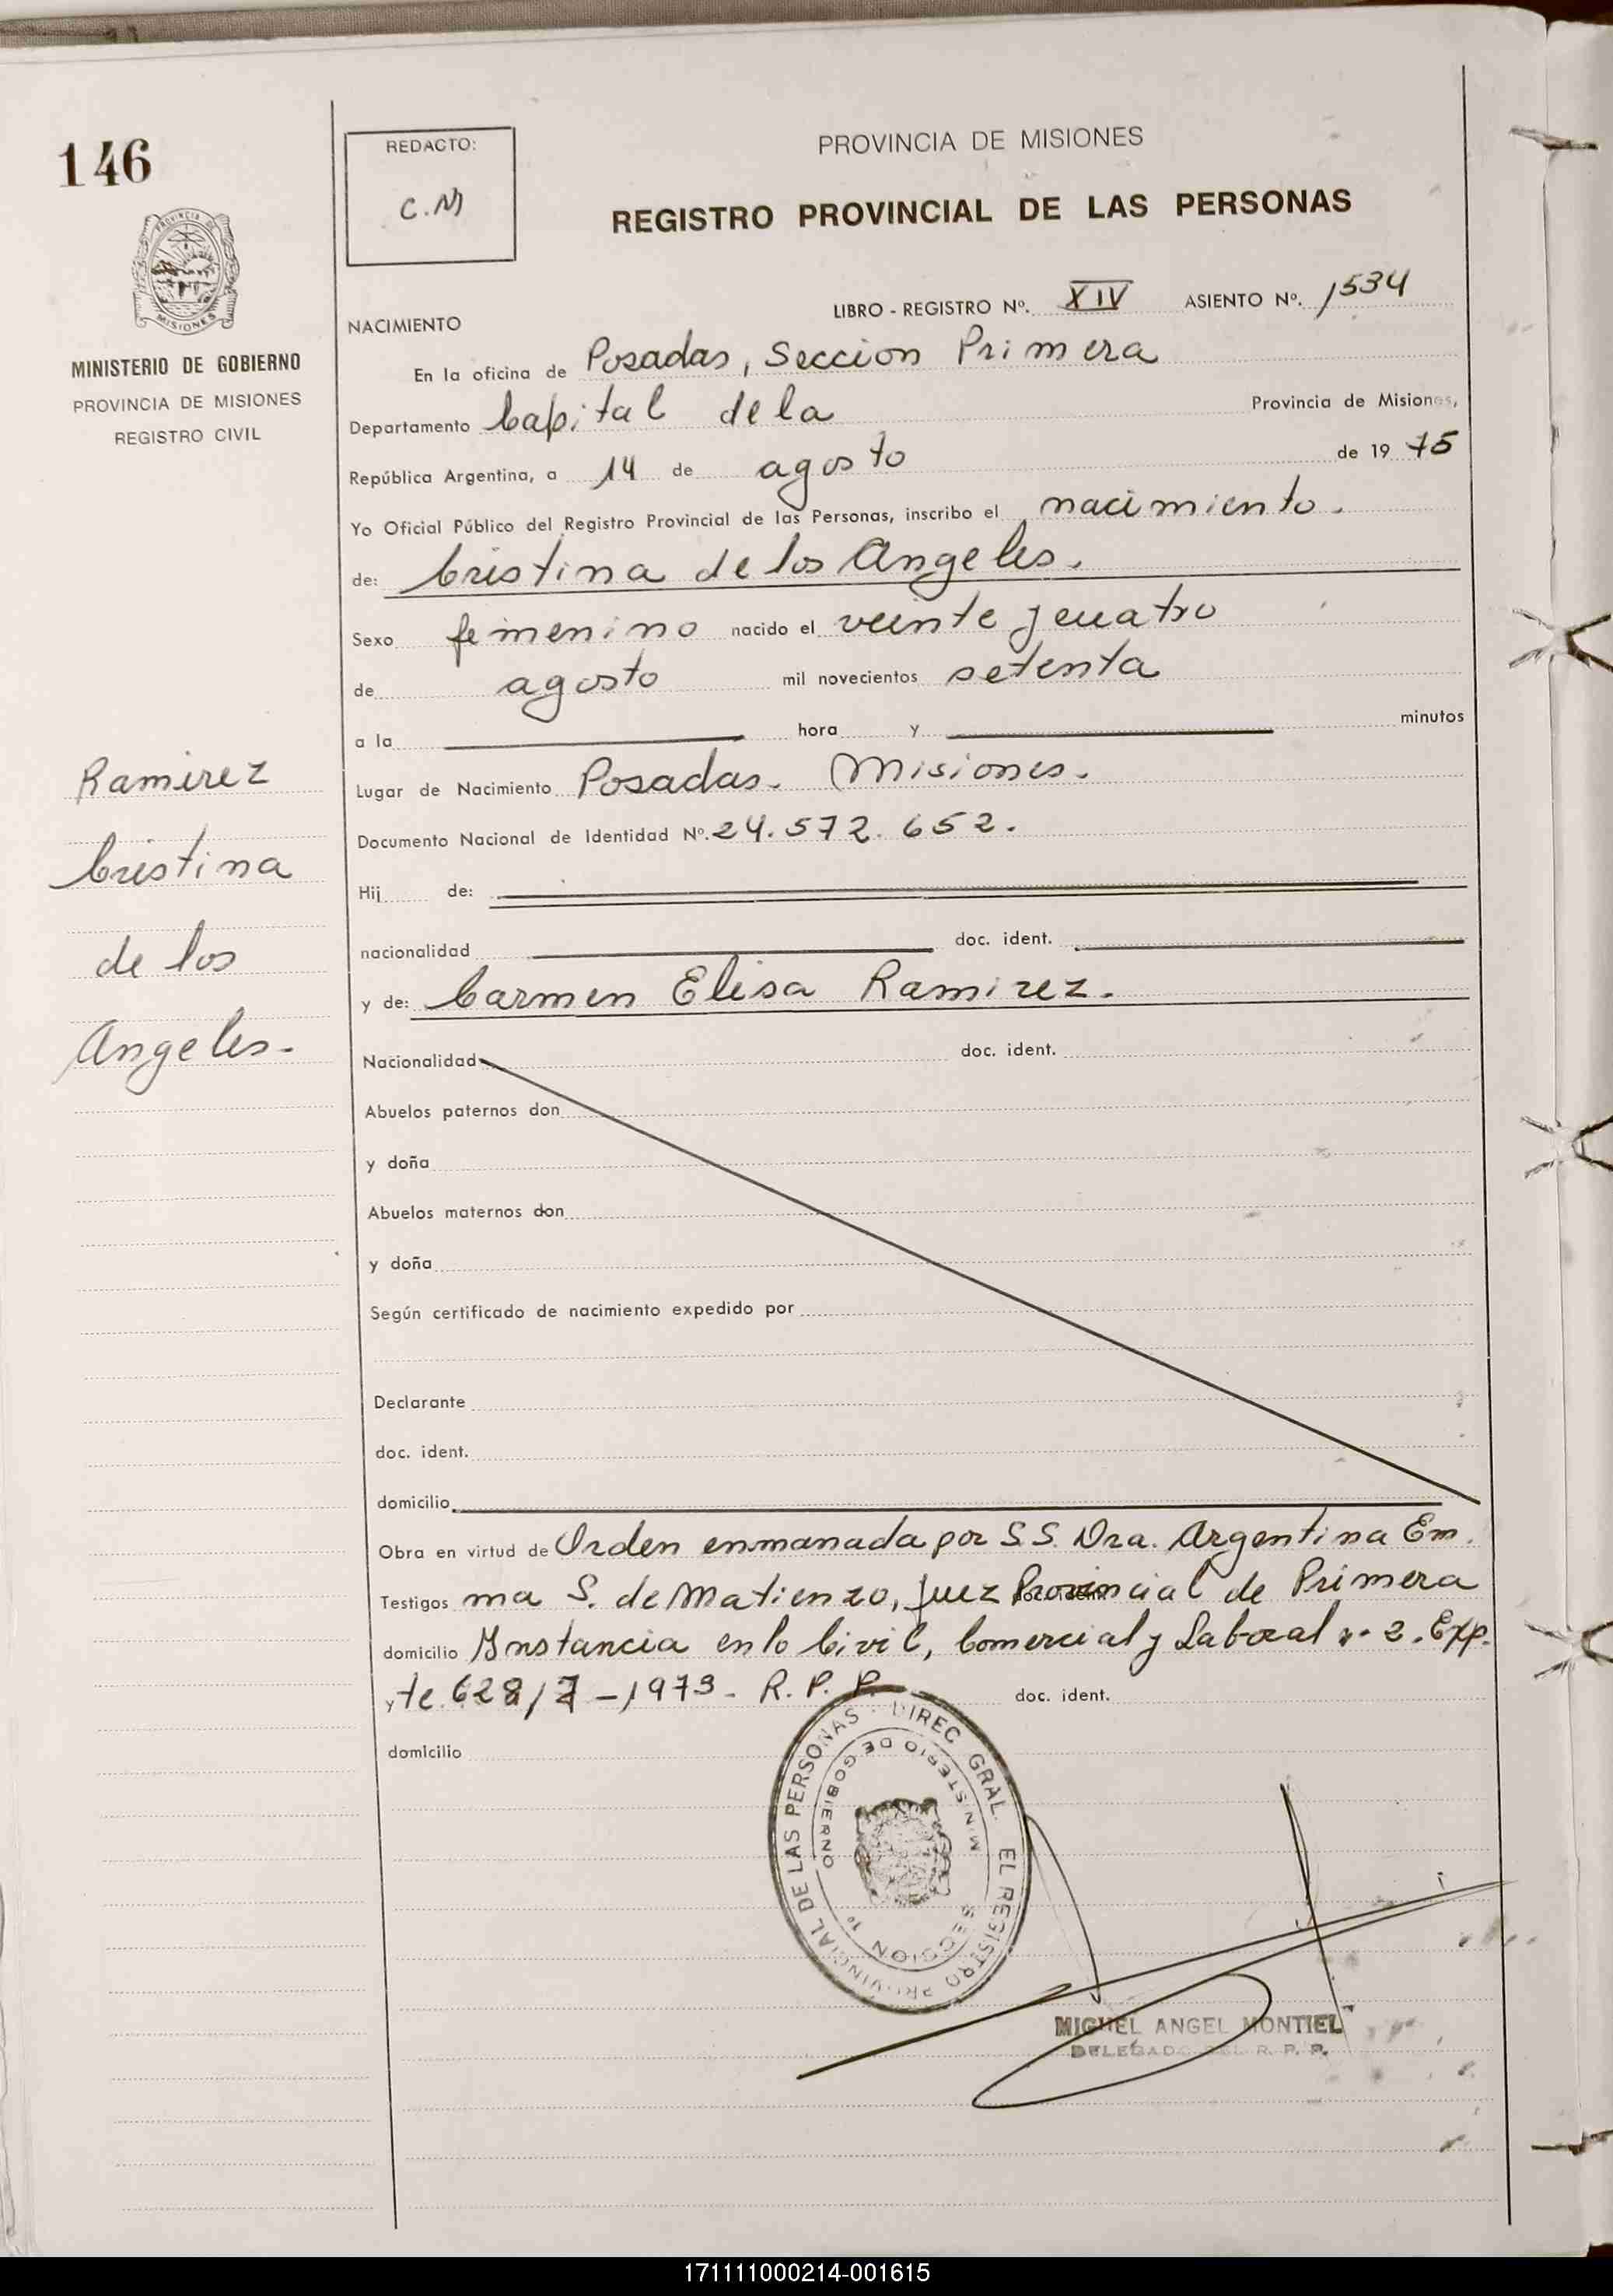 146
REDACTO:
C.M
PROVINCIA DE MISIONES
REGISTRO PROVINCIAL DE LAS PERSONAS
PROVINCIA
MISIONES
MINISTERIO DE GOBIERNO
PROVINCIA DE MISIONES
REGISTRO CIVIL
LIBRO - REGISTRO Nº. XIV ASIENTO Nº. 1534
NACIMIENTO
En la oficina de Posadas, Seccion Primera
Departamento Capital de la Provincia de Misiones,
República Argentina, a 14 de agosto de 19 75
Yo Oficial Público del Registro Provincial de las Personas, inscribo el nacimiento.
de: Cristina de los Angeles.
Sexo femenino nacido el veinte y cuatro
de agosto mil novecientos setenta
a la hora y minutos
Lugar de Nacimiento Posadas. Misiones.
Documento Nacional de Identidad Nº. 24.572.652.
Hij de:
nacionalidad doc. ident.
y de: Carmen Elisa Ramirez.
Ramirez
Cristina
de los
Angeles.
Nacionalidad doc. ident.
Abuelos paternos don
y doña
Abuelos maternos don
y doña
Según certificado de nacimiento expedido por
Declarante
doc. ident.
domicilio
Obra en virtud de Orden enmanada por S.S. Dra. Argentina Em
Testigos ma S. de Matienzo, Juez Provincial de Primera
domicilio Instancia en lo Civil, Comercial y Laboral nº 2. Exp.
y te. 628/7-1973- R.P.P. doc. ident.
domicilio
DIREC. GRAL. EL REGISTRO PROVINCIAL DE LAS PERSONAS
MINISTERIO DE GOBIERNO
SECCION 1º
MIGUEL ANGEL MONTIEL
DELEGADO DEL R. P. P.
171111000214-001615